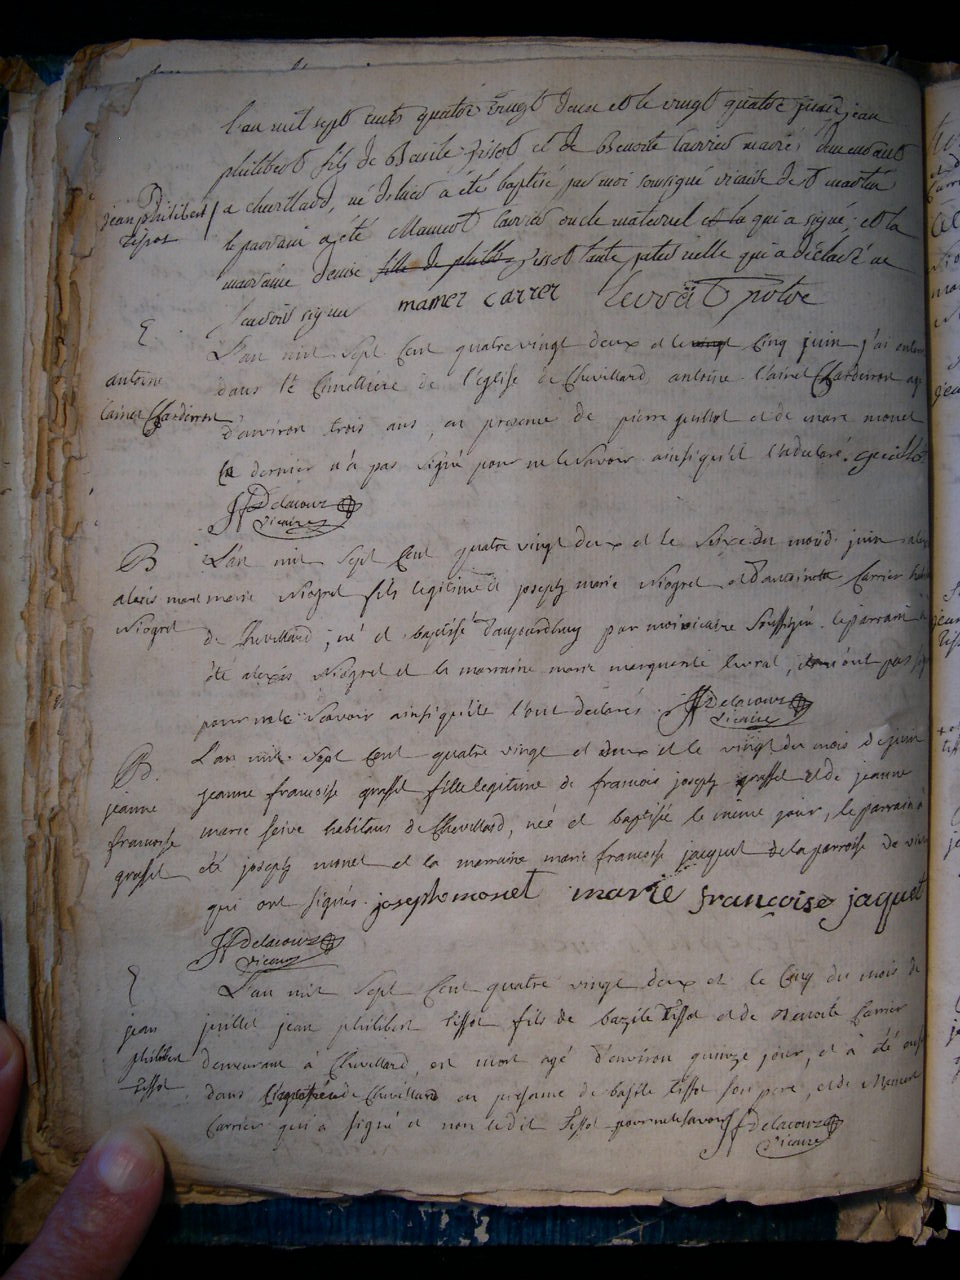 l'an mil sept cents quatre vingt deux et le vingt quatre juin jean
philibert fils de Basile tissot et de Benoite Carrier mariés demeurant
a chevillard, né d'hier a été baptisé par moi soussigné vicaire de st martin
B
jean philibert
tissot
le parrain a été Mamert Carrier oncle maternel qui a signé, et la
marraine denise tissot tante paternelle qui a déclaré ne
scavoir signer mamer carrer
E
antoine
lainet Chardeiron
L'an mil Sept Cent quatre vingt deux et le Cinq juin j'ai enterré
dans le Cimettiere de l'eglise de Chevillard, antoine lainet Chardeiron agé
d'environ trois ans, en presence de pierre guillot et de marc monet
Ce dernier n'a pas signé pour ne le savoir ainsi qu'il l'a declaré. guillot
JF Delacour
vicaire
B
alexis marie
Niogret
L'an mil Sept Cent quatre vingt deux et le du mois juin alexis
marie Niogret fils legitime de joseph marie Niogret et d'antoinette Carrier
de Chevillard, né et baptisé d'aujourdhuy par moi vicaire Soussigné. le parrain à
été alexis Niogret et la marraine marie marguerite livrat, n'ont pas signé
pour ne le Scavoir ainsi qu'ils l'ont declarés. JF Delacour
vicaire
B.
jeanne
francoise
grassel
L'an mil Sept Cent quatre vingt et deux et le vingt du mois de juin
jeanne francoise grassel fille legitime de francois joseph grassel et de jeanne
marie seive habitans de Chevillard, née et baptisée le même jour, le parrain à
été joseph monet et la marraine marie francoise jacquet de la parroisse de
qui ont signés. joseph monet marie françoise jaquet
JF Delacour
vicaire
E
jean
philibert
tissot
L'an mil Sept Cent quatre vingt deux et le Cinq du mois de
juillet jean philibert tissot fils de bazile tissot et de Benoite Carrier
demeurant à Chevillard, est mort agé d'environ quinze jour, et à été
dans de Chevillard en presence de basile tissot son pere, et de Mamert
Carrier qui a signé et non ledit tissot pour ne le savoir JF Delacour
vicaire